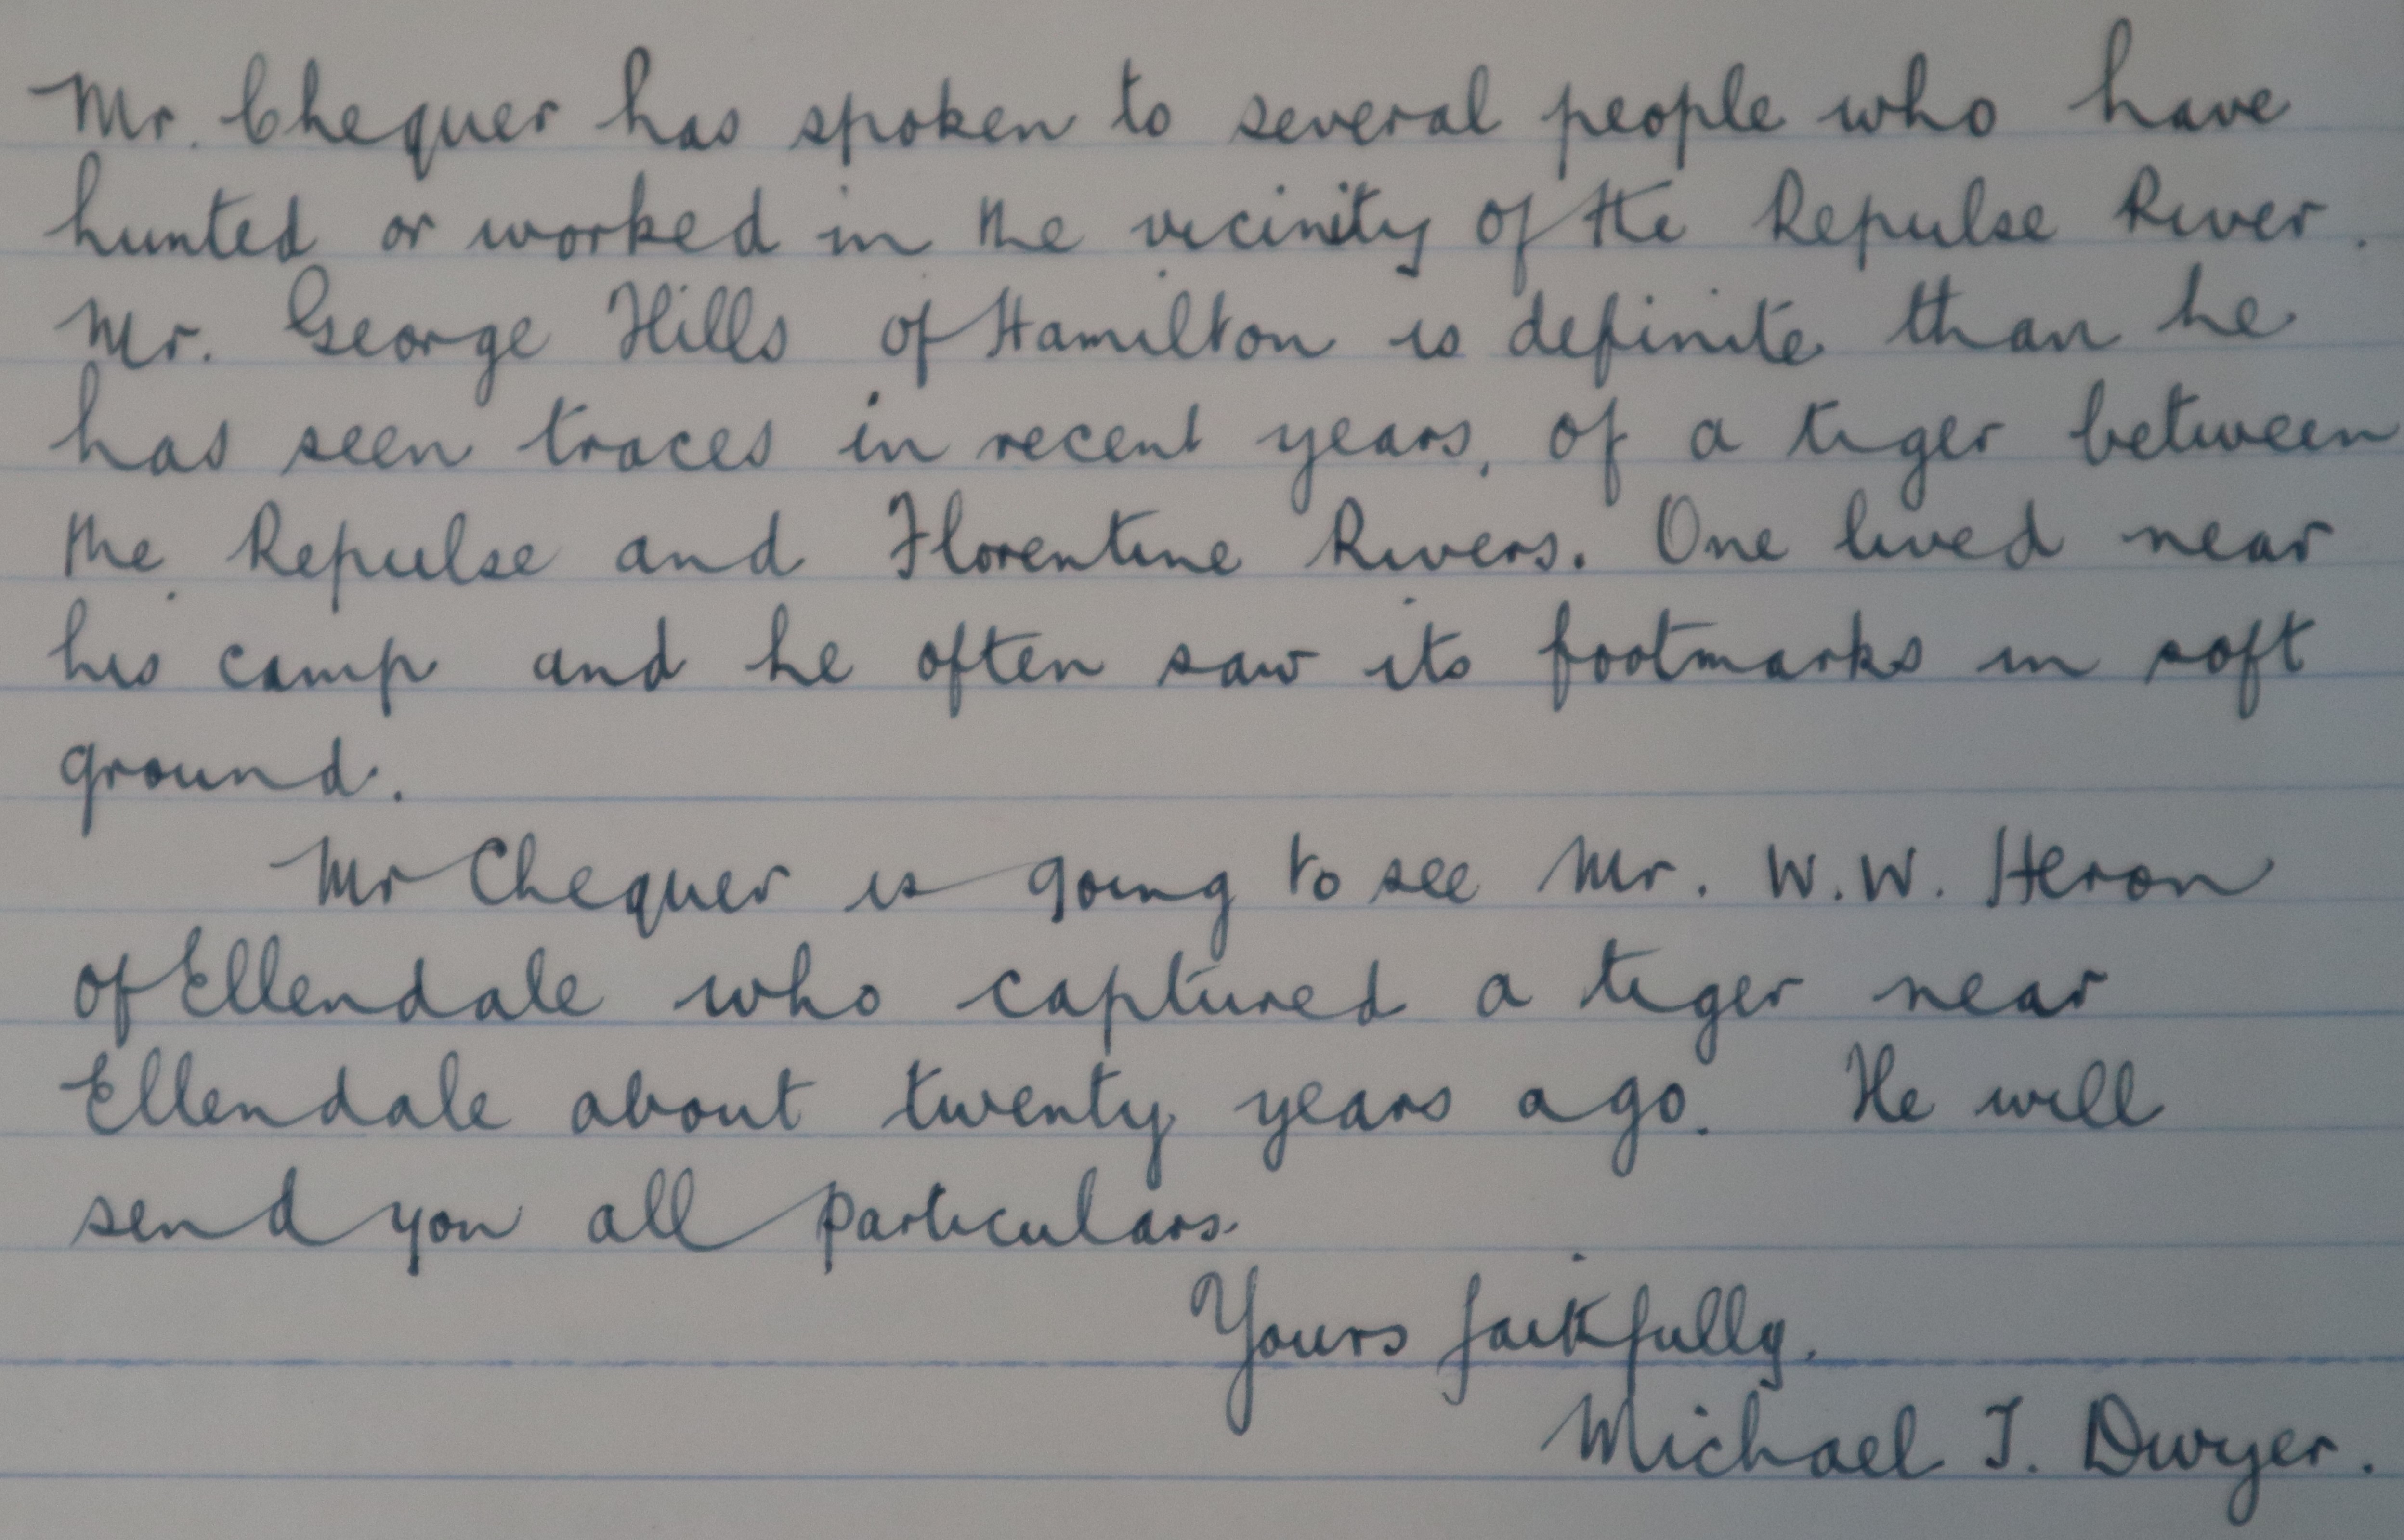 Mr. Chequer has spoken to several people who have
hunted or worked in the vicinity of the Repulse River.
Mr. George Hills of Hamilton is definite than he
has seen traces in recent years, of a tiger between
the Repulse and Florentine Rivers. One lived near
his camp and he often saw its footmarks in soft
ground.
Mr Chequer is going to see Mr. W.W. Heron
of Ellendale who captured a tiger near
Ellendale about twenty years ago. He will
send you all particulars.
Yours faithfully,
Michael J. Dwyer.